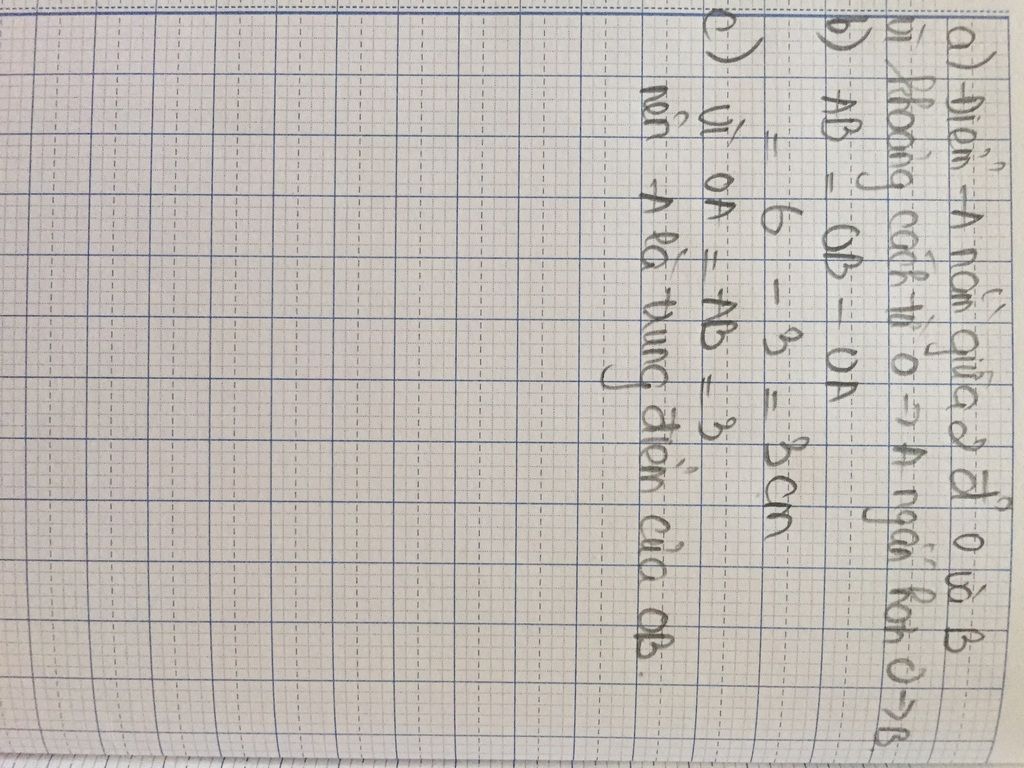 a) Điểm A nằm giữa 2 đ' O và B
Vì khoảng cách từ O → A ngắn hơn O → B
b) AB = OB - OA
= 6 - 3 = 3cm
c) Vì OA = AB = 3
nên A là trung điểm của OB.